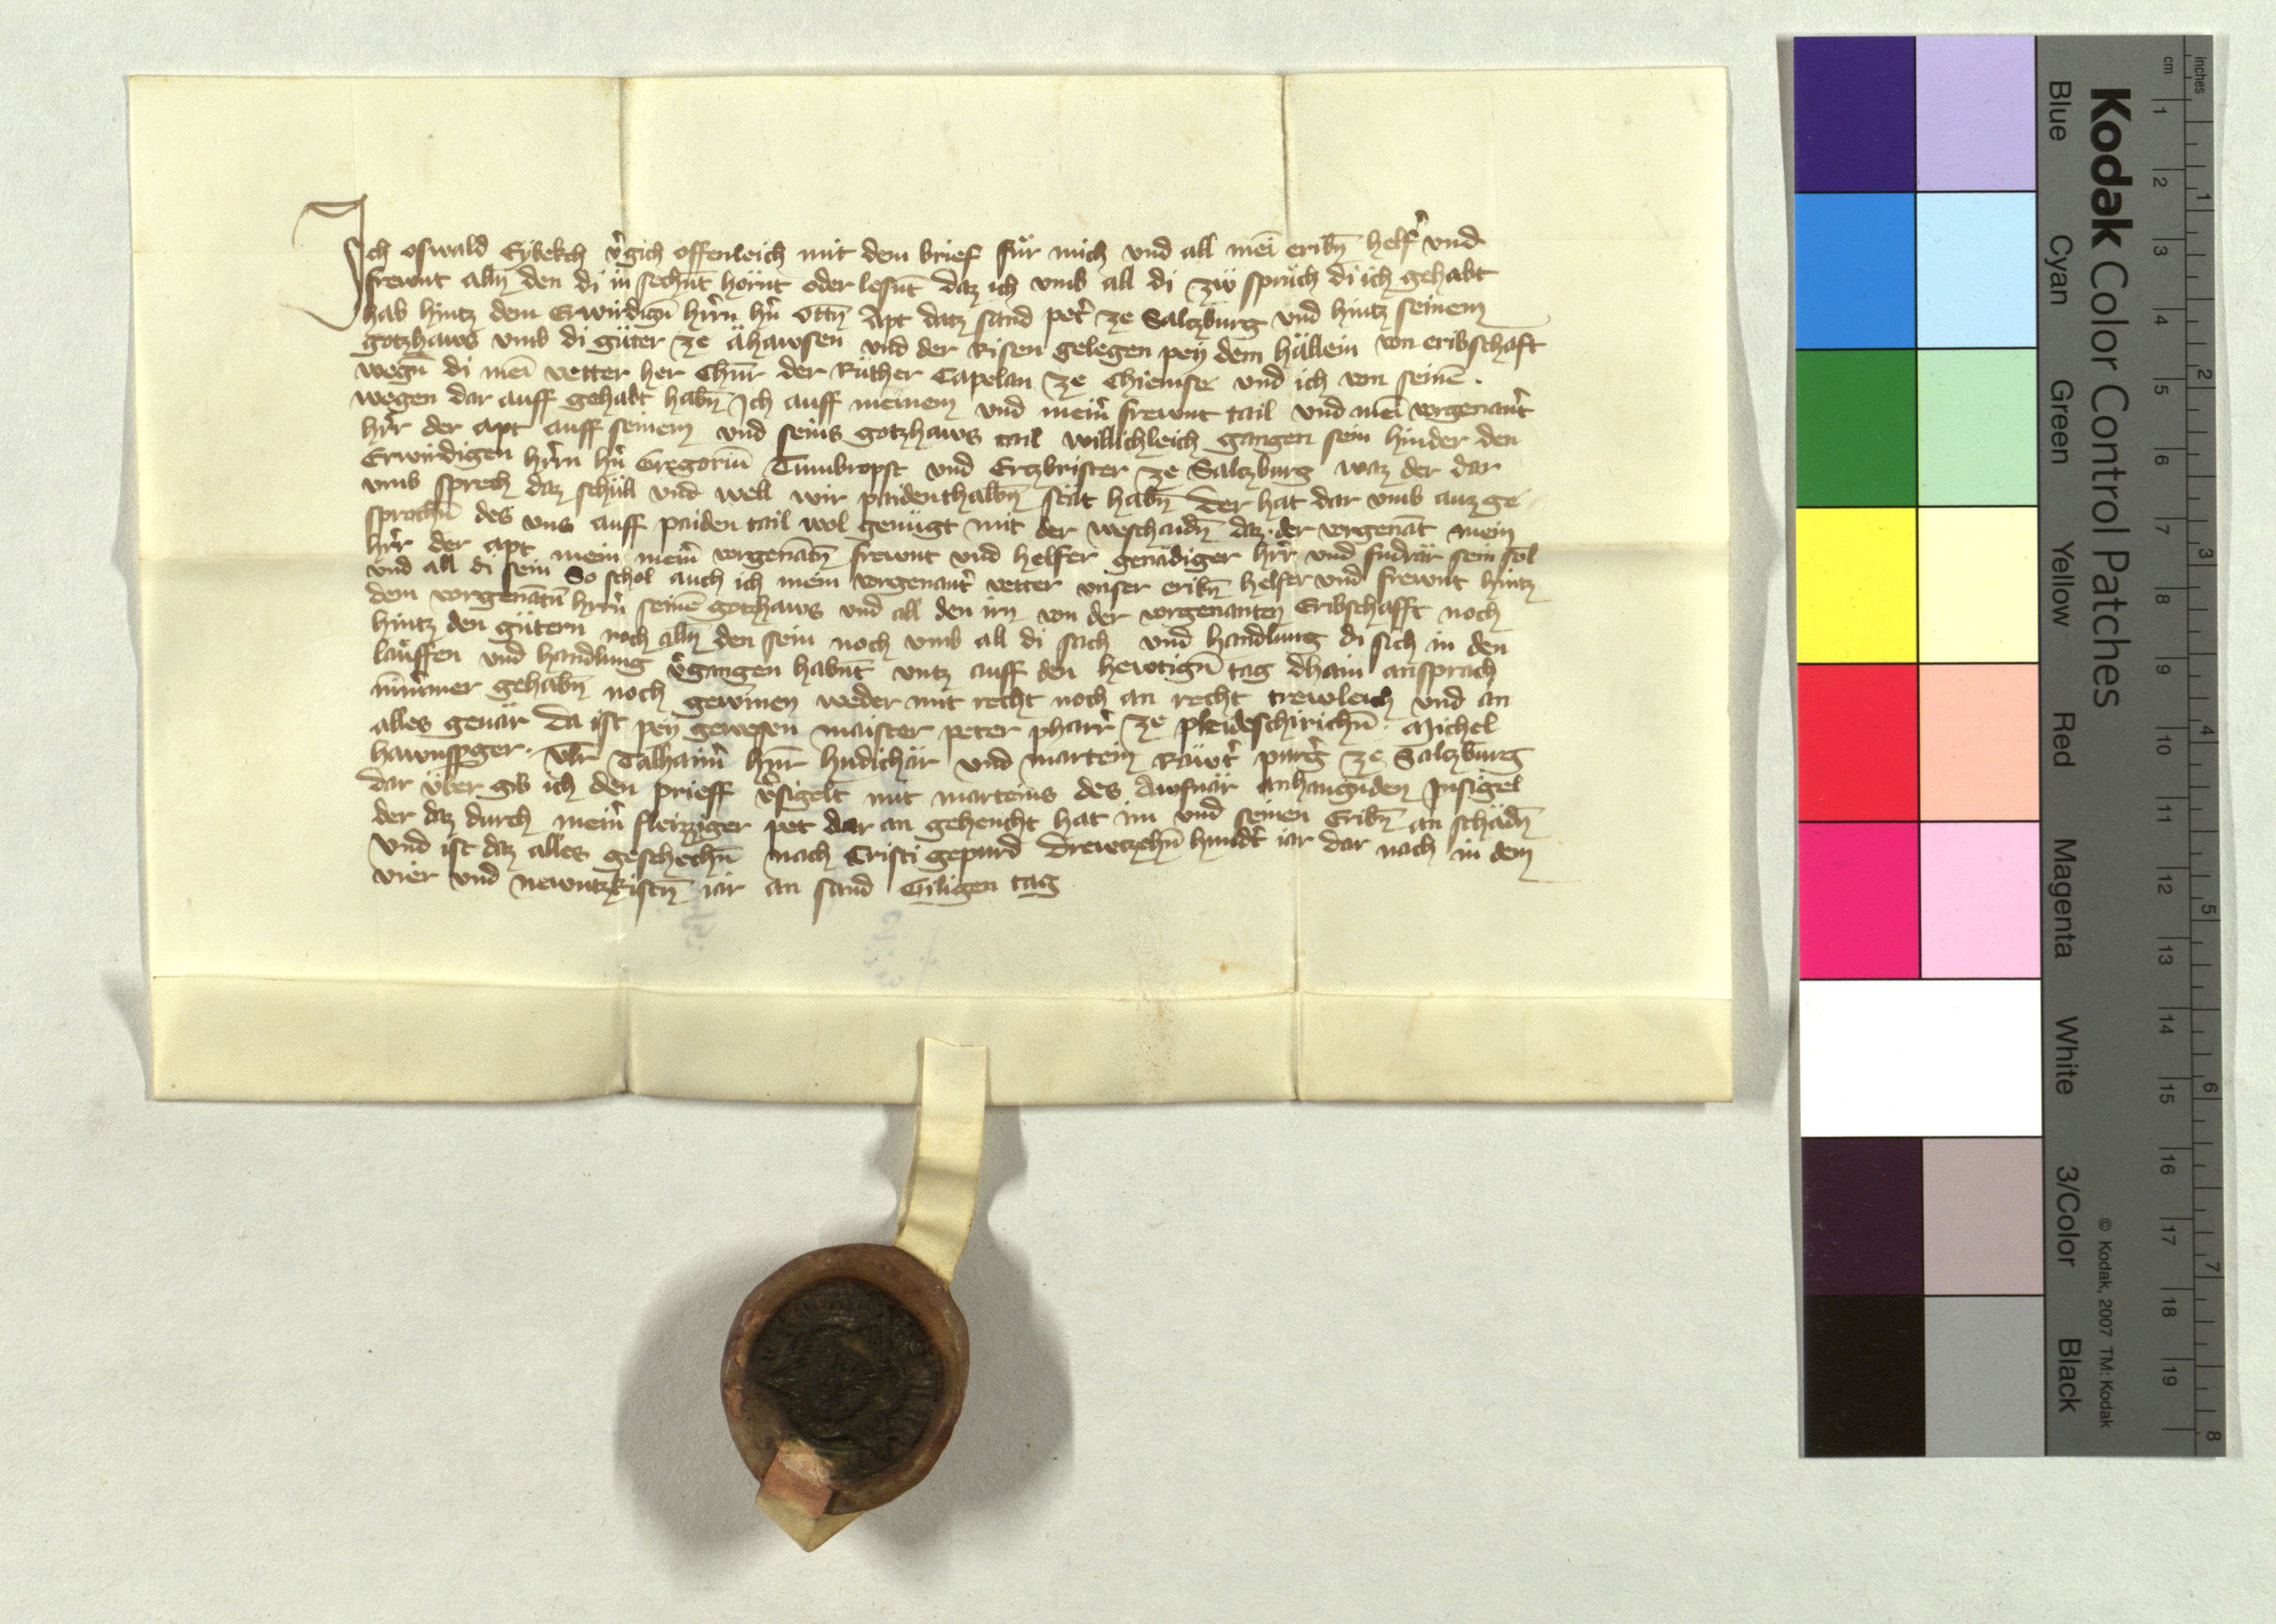 Ich oswald Eybekch v͛gich offenleich mit dem brief für mich vnd all mei͞ erib͞n helf͛ vnd
frewnt all͞n den di in sech͞nt hör͞nt oder les͞nt daz ich vmb all di zw̎ sprüch di ich gehabt
hab hintz dem Erwirdig͞n h͛rrn h͛n Ott͞n Apt datz sand pet͛ ze Salczburg vnd hintz seinem
gotzhaws vmb di gu̎ter ze ähawsen vnd der Risen gelegen pey dem hällein von eribschaft
weg͞n di mei͞ vetter her Chu͞nr der Rüther Capelan ze Chiemse vnd ich von seine͞ .
wegen dar auff gehabt hab͞n Ich auff meinem vnd mein͛ frewnt tail vnd mei͞ vorgenant͛
h͛rr der apt auff seinem vnd seins gotzhaws tail willichleich gangen sein hinder den
Erwirdigen h͛rrn h͛n Gregoriu͞ Tumbropst vnd Ertzbrister ze Salczburg waz der dar
vmb sprech daz schüll vnd well wir paidenthalb͞n stät hab͞n Der hat dar vmb auz ge-
sproch͞n des vns auff paiden tail wol genügt mit der weschaid͞n daz der vorgena͞t mein
h͛rr der apt mein mein͛ vorgena͞t͞n frewnt vnd helfer genädiger h͛rr vnd fudrär sein sol
vnd all di sein So schol auch ich mein vorgenant͛ vetter vnser erib͞n helfer vnd frewnt hintz
dem vorgena͞t͞n h͛rrn seine͞ gotzhaws vnd all den irn von der vorgenanten Eribschafft noch
hintz den gütern noch all͞n den sein noch vmb all di sach vnd handlung di sich in den
läuffen vnd handlung v͛gangen hab͞nt vntz auff den hewtig͞n tag dhain ansprach
nim͛mer gehab͞n noch gewinnen weder mit recht noch an recht trewleich vnd an
alles geuär Da ist pey gewesen maister peter pharr͛ ze pleideschirich͞n . Michel
hawnspger . Vl͞r Talhaim͛ h͞nr hudichär vnd martein Räwt͛ purg͛ ze Salczburg
dar über gib ich den prieff v͛sigelt mit marteins des Awfnär anhang͞nden Insigel
der daz durch mein͛ fleizziger pet dar an gehencht hat im vnd seinen Erib͞n an schäd͞n
vnd ist daz alles geschech͞n nach Cristi gepurd Drewtzeh͞n hundt͛ iar dar nach in dem
vier vnd newntzkist͞n iar an sand Giligen tag
Kodak Color Control Patches
Blue Cyan Green Yellow Red Magenta White 3/Color Black
© Kodak, 2007 TM: Kodak
cm 1 2 3 4 5 6 7 8 9 10 11 12 13 14 15 16 17 18 19
inches 1 2 3 4 5 6 7 8